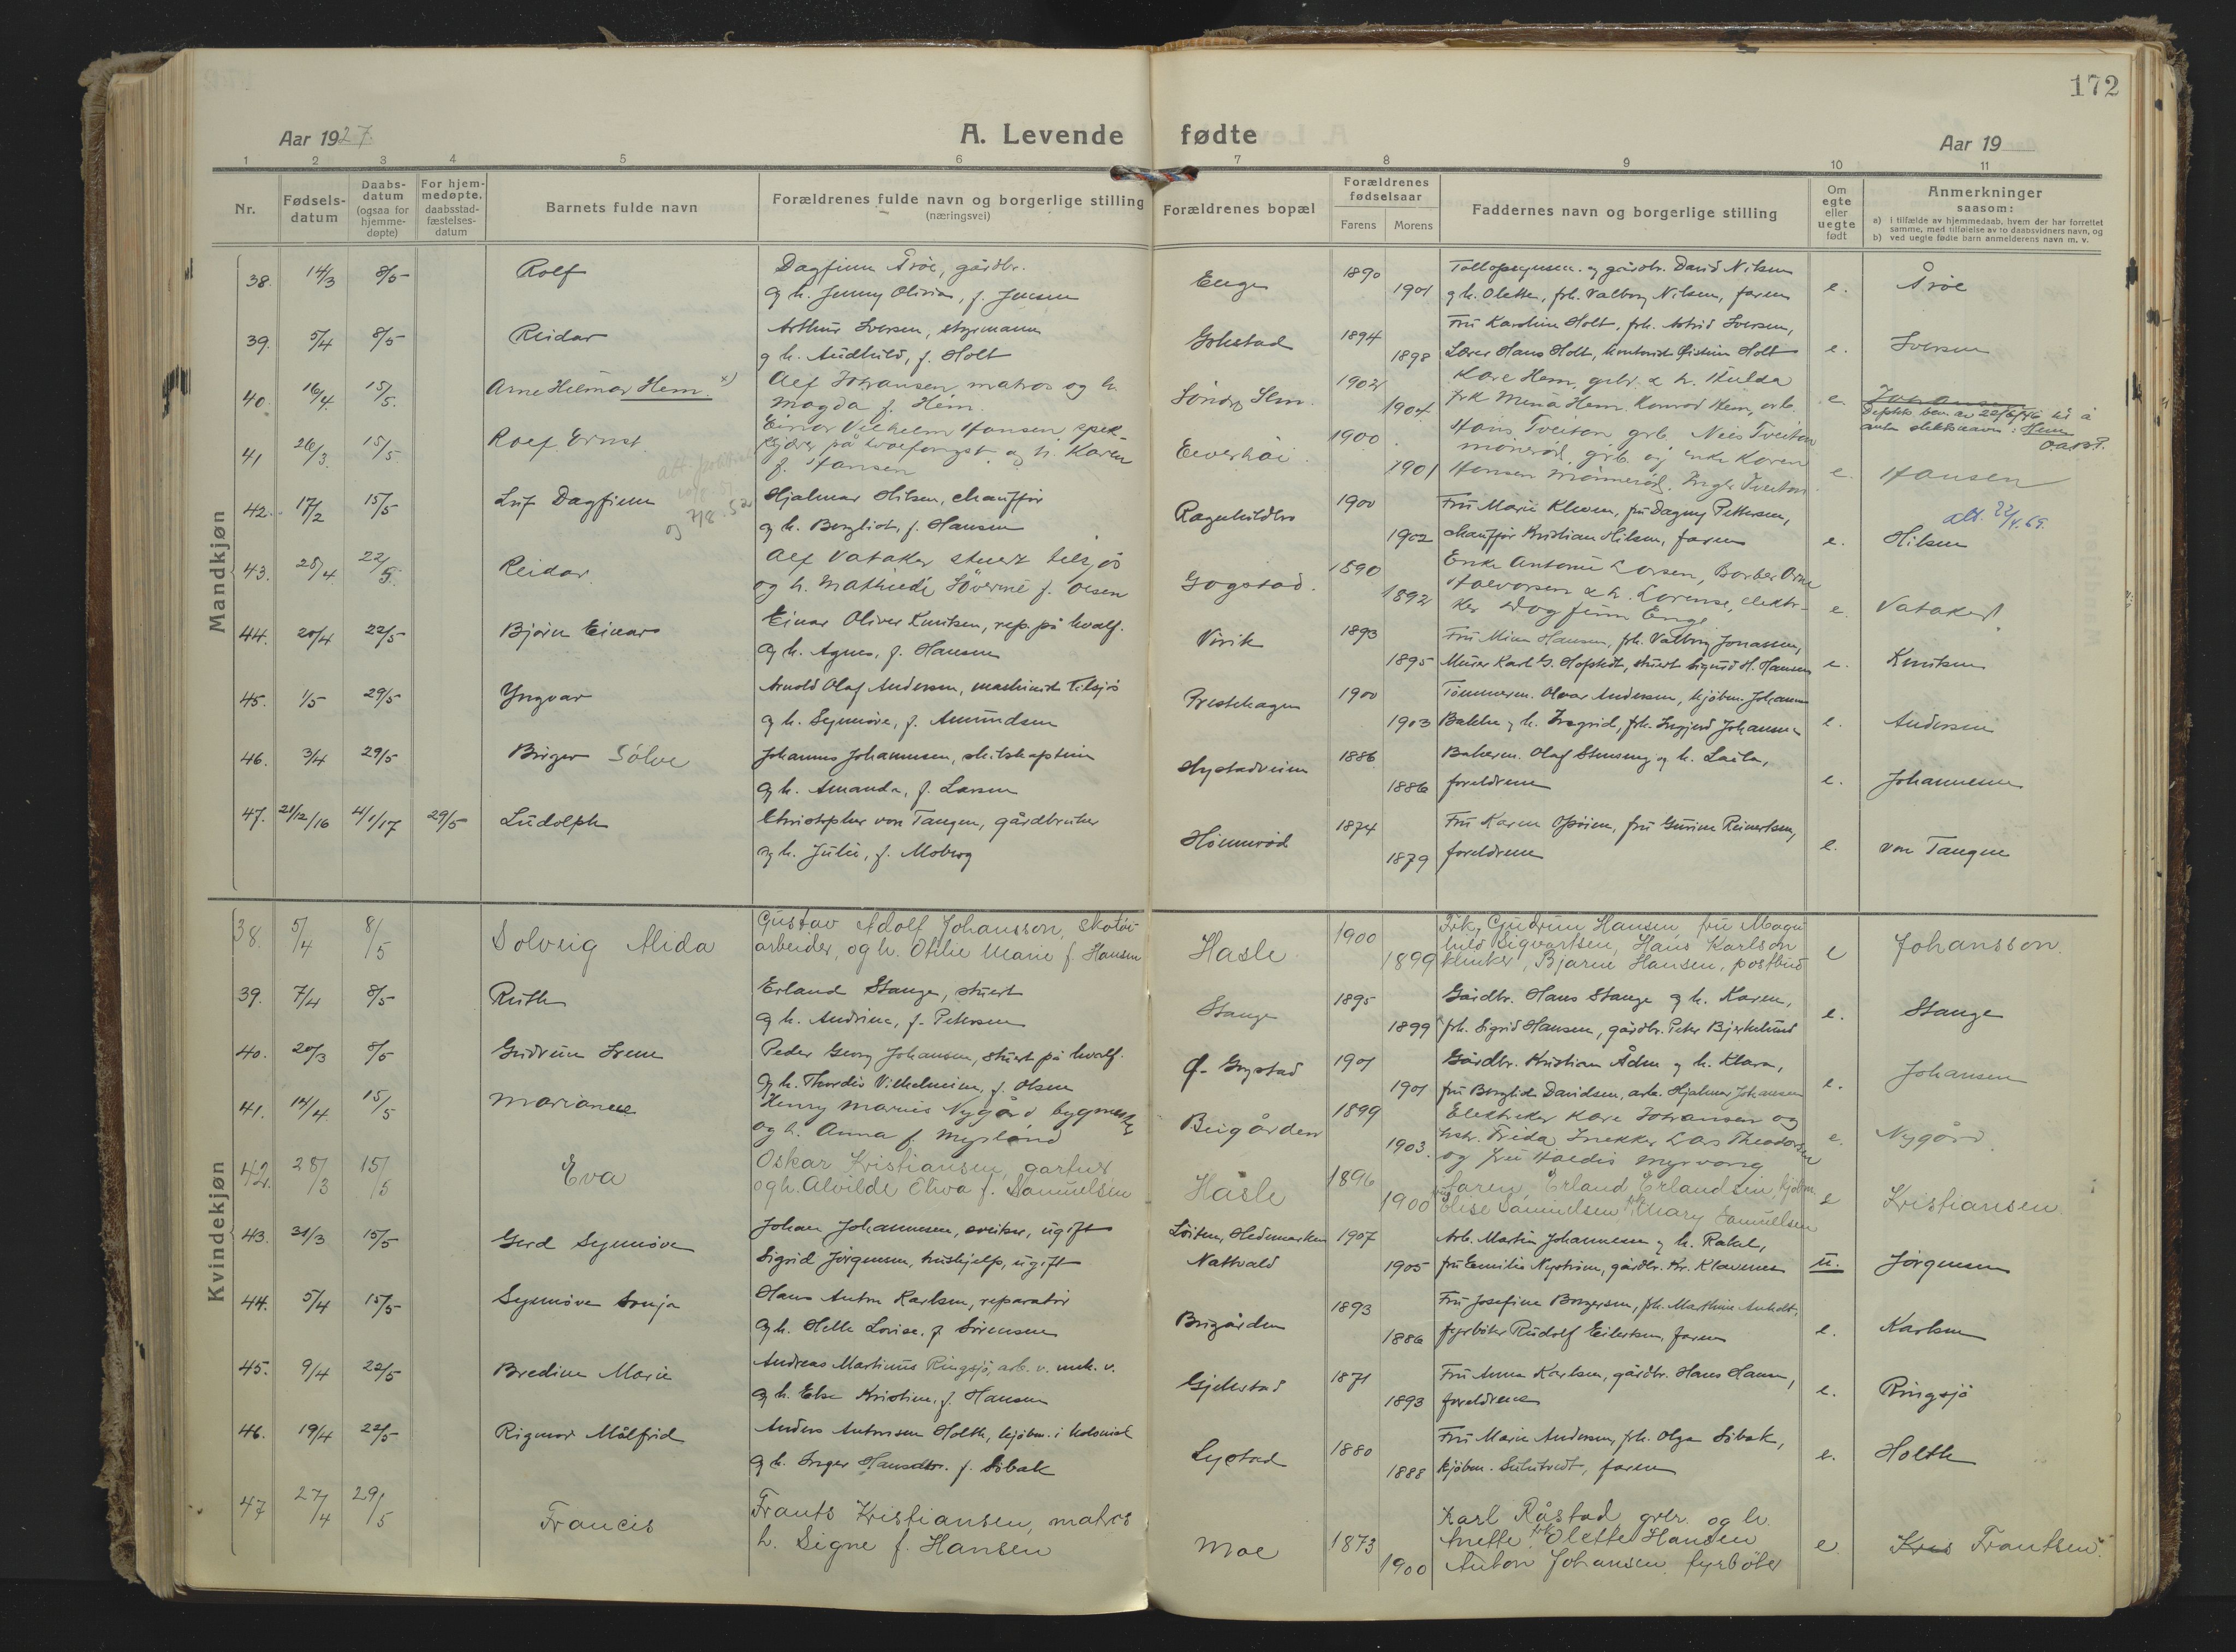 172
Aar 1927.
A. Levende fødte
Aar 19
1 2 3 4 5 6 7 8 9 10 11
Nr.
Fødsels-
datum
Daabs-
datum
(ogsaa for
hjemme-
døpte)
For hjem-
medøpte,
daabsstad-
fæstelses-
datum
Barnets fulde navn
Forældrenes fulde navn og borgerlige stilling
(næringsvei)
Forældrenes bopæl
Forældrenes
fødselsaar
Farens Morens
Faddernes navn og borgerlige stilling
Om
egte
eller
uegte
født
Anmerkninger
saasom:
a) i tilfælde av hjemmedaab, hvem der har forrettet
samme, med tilføielse av to daabsvidners navn, og
b) ved uegte fødte barn anmelderens navn m. v.
Mandkjøn
38. 14/3 8/5 Rolf Dagfinn Åröe, gårdbr. Enge 1890 Tollopsynsm. og gårdbr. David Nilsen
og h. Jenny Olivia, f. Jensen 1901 og h. Olette, frk. Valborg Nilsen, faren e. Åröe
39. 5/4 8/5 Reidar Arthur Iversen, styrmann Gokstad 1894 Fru Karoline Holt, frk. Astrid Iversen,
og h. Audhild, f. Holt 1898 Lærer Hans Holt, kontorist Øistein Holt e. Iversen
40. 16/4. 15/5. Arne Hilmar Hem. x) Alf Johansen matros og h. Söndre Hem. 1902 Kåre Hem. grbr. & h. Hulda
Magda f. Hem. 1904. frk Mena Hem. Konrad Hem, arb. e. Johansen
Depchts bev. av 22/6/46 til å
anta slektsnavn: Hem
41 26/3. 15/5. Rolf Ernst Einar Vilhelm Hansen spek-
kjører på hvalfangst og h. Karen
f. Hansen Elverhöi. 1900. 1901 Hans Tveiten grb. Nils Tveiten
Mönneröd, grb. og enke Karen
Hansen Mönneröd. Inga Tveiten e. Hansen
42. 17/2 15/5 Leif Dagfinn Hjalmar Nilsen, chauffør Ragnhildbro 1900 Fru Marie Kleven, fru Dagny Pettersen,
og 7/8. 52
og h. Bergliot, f. Hansen 1902 chauffør Kristian Nilsen, faren e. Nilsen
att. 22/4. 69.
43. 28/4. 22/5. Reidar. Alf Vataker stuert tilsjös Gogstad. 1890 Enke Antonie Larsen, Barber Arne
og h. Mathilde Severine f. Olsen 1892 Halvorsen & h. Lorense, elektri-
ker Dagfinn Enge e. Vataker.
44. 20/4 22/5 Bjørn Einar Einar Oliver Knutsen, rep. på hvalf. Virik 1893 Fru Mina Hansen, frk. Valborg Jonassen,
og h. Agnes, f. Hansen 1895 Murer Karl G. Hofstedt, stuert Sigurd H. Hansen e. Knutsen
45. 1/5 29/5 Yngvar Arnold Olaf Andersen, maskinist tilsjös Prestehagen 1900 Tømmerm. Olvar Andersen, kjøbm. Johannes
og h. Synnøve, f. Amundsen 1903 Bakke og h. Ingrid, frk. Ingjerd Johansen e. Andersen
46. 3/4 29/5 Birger Sölve Johannes Johannesen, skibskaptein Nystadveien 1886 Bakerm. Olaf Stensang og h. Laila,
og h. Amanda, f. Larsen 1886 foreldrene e. Johannesen
47. 21/12/16 4/1/17 29/5 Ludolph Christopher von Tangen, gårdbruker Hönneröd 1874 Fru Karen Opöien, fru Gurine Reinertsen,
og h. Julie, f. Moberg 1879 foreldrene e. von Tangen
Kvindekjøn
38. 5/4 8/5 Solveig Alida Gustav Adolf Johansson, skotöi-
arbeider, og h. Ottlie Marie f. Hansen Hasle 1900 1899 Frk. Gudrun Hansen, fru Magn-
hild Sigvartsen, Hans Karlson
klinker, Bjarne Hansen, postbud e Johansson.
39. 7/4 8/5 Ruth Erland Stange, stuert Stange 1895 Gårdbr. Hans Stange og h. Karen,
og h. Andrine, f. Pettersen 1899 frk. Sigrid Hansen, gårdbr. Peter Bjerkelund e. Stange
40. 20/3 8/5 Gudrun Irene Peder Georg Johansen, stuert på hvalf. Ø. Grystad 1901 Gårdbr. Kristian Ådne og h. Klara,
og h. Thordis Vilhelmine, f. Olsen 1901 fru Bergliot Davidsen, arb. Hjalmar Johansen e. Johansen
41. 14/4. 15/5 Marianne Henry Marius Nygård bygmester
og h. Anna f. Mysland Beigården 1899 1903. Elektriker Kåre Johansen og
hstr. Frida Snekker Lars Theodorsen
og fru Haldis Myrvang e. Nygård.
42. 28/3 15/5 Eva Oskar Kristiansen, gartner
og h. Alvilde Oliva f. Samuelsen Hasle 1896 1900 faren, Erland Erlandsen, kjøbm.
Elise Samuelsen frk. Mary Samuelsen e Kristiansen.
43. 31/3 15/5 Gerd Synnøve Johan Johannesen, sveiser, ugift Löiten, Hedemarken 1907 Arb. Martin Johannesen og h. Rakel,
Sigrid Jørgensen, hushjelp, ugift Nattvald 1905 fru Emilie Nyström, gårdbr. Kr. Klavenes u. Jørgensen
44. 5/4 15/5 Synnøve Sonja Hans Anton Karlsen, reparatör Beigården 1893 Fru Josefine Borgersen, frk. Marthine Anholt,
og h. Helle Lovise, f. Sörensen 1886 fyrbøter Rudolf Eilertsen, faren e. Karlsen
45. 9/4 22/5 Bredine Marie Andreas Martinus Ringsjö, arb. v. mek. v. Gjekstad 1871 Fru Anna Karlsen, gårdbr. Hans Hansen,
og h. Else Kristine, f. Hansen 1893 foreldrene e. Ringsjö
46. 19/4 22/5 Rigmor Målfrid Anders Antonsen Holth, kjøbm. i kolonial Lystad 1880 Fru Marie Andersen, frk. Olga Sibak,
og h. Inger Hansdtr. f. Sibak 1888 kjøbm. faren e. Holth
47 27/4 29/5 Francis Frants Kristiansen, matros
h. Signe f. Hansen Moe 1873 1900 Karl Råstad grbr. og h.
Anette, frk Olette Hansen
Anton Johansen, fyrböter e Kris Frantsen.